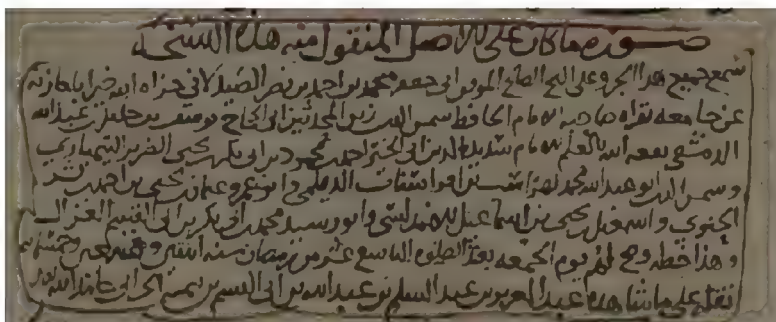 صورة ما كان على الاصل المنقول منه هذه النسخة
سمع جميع هذا الجزء على الشيخ الصالح الموفق ابي جعفر محمد بن احمد بن نصر الصيدلاني جزاه الله خيرا باجازته
عن جامعه بقراه صاحبه الامام الحافظ شمس الدين زين المحدثين ابي الحاج يوسف بن خليل بن عبد الله
الدمشقي نفعه الله بالعلم الامام سديد الدين ابو احمد محمود بن ابي بكر بن يحيى الضرير
وشمس الدين ابو عبد الله محمد بن وابو عمرو عثمان بن يحيى بن احمد
واسمعيل بن يحيى بن اسماعيل وابو رشيد محمد بن ابي بكر بن ابي القسم الغزال
وهذا خطه وصح لهم يوم الجمعه بعد الصلوه التاسع عشر من رمضان سنه اثنتين وتسعين وخمسمايه
نقله على ما شاهده عبد العزيز بن عبد السلم بن عبد الله بن ابي القسم بن تيميه الحراني حامدا لله